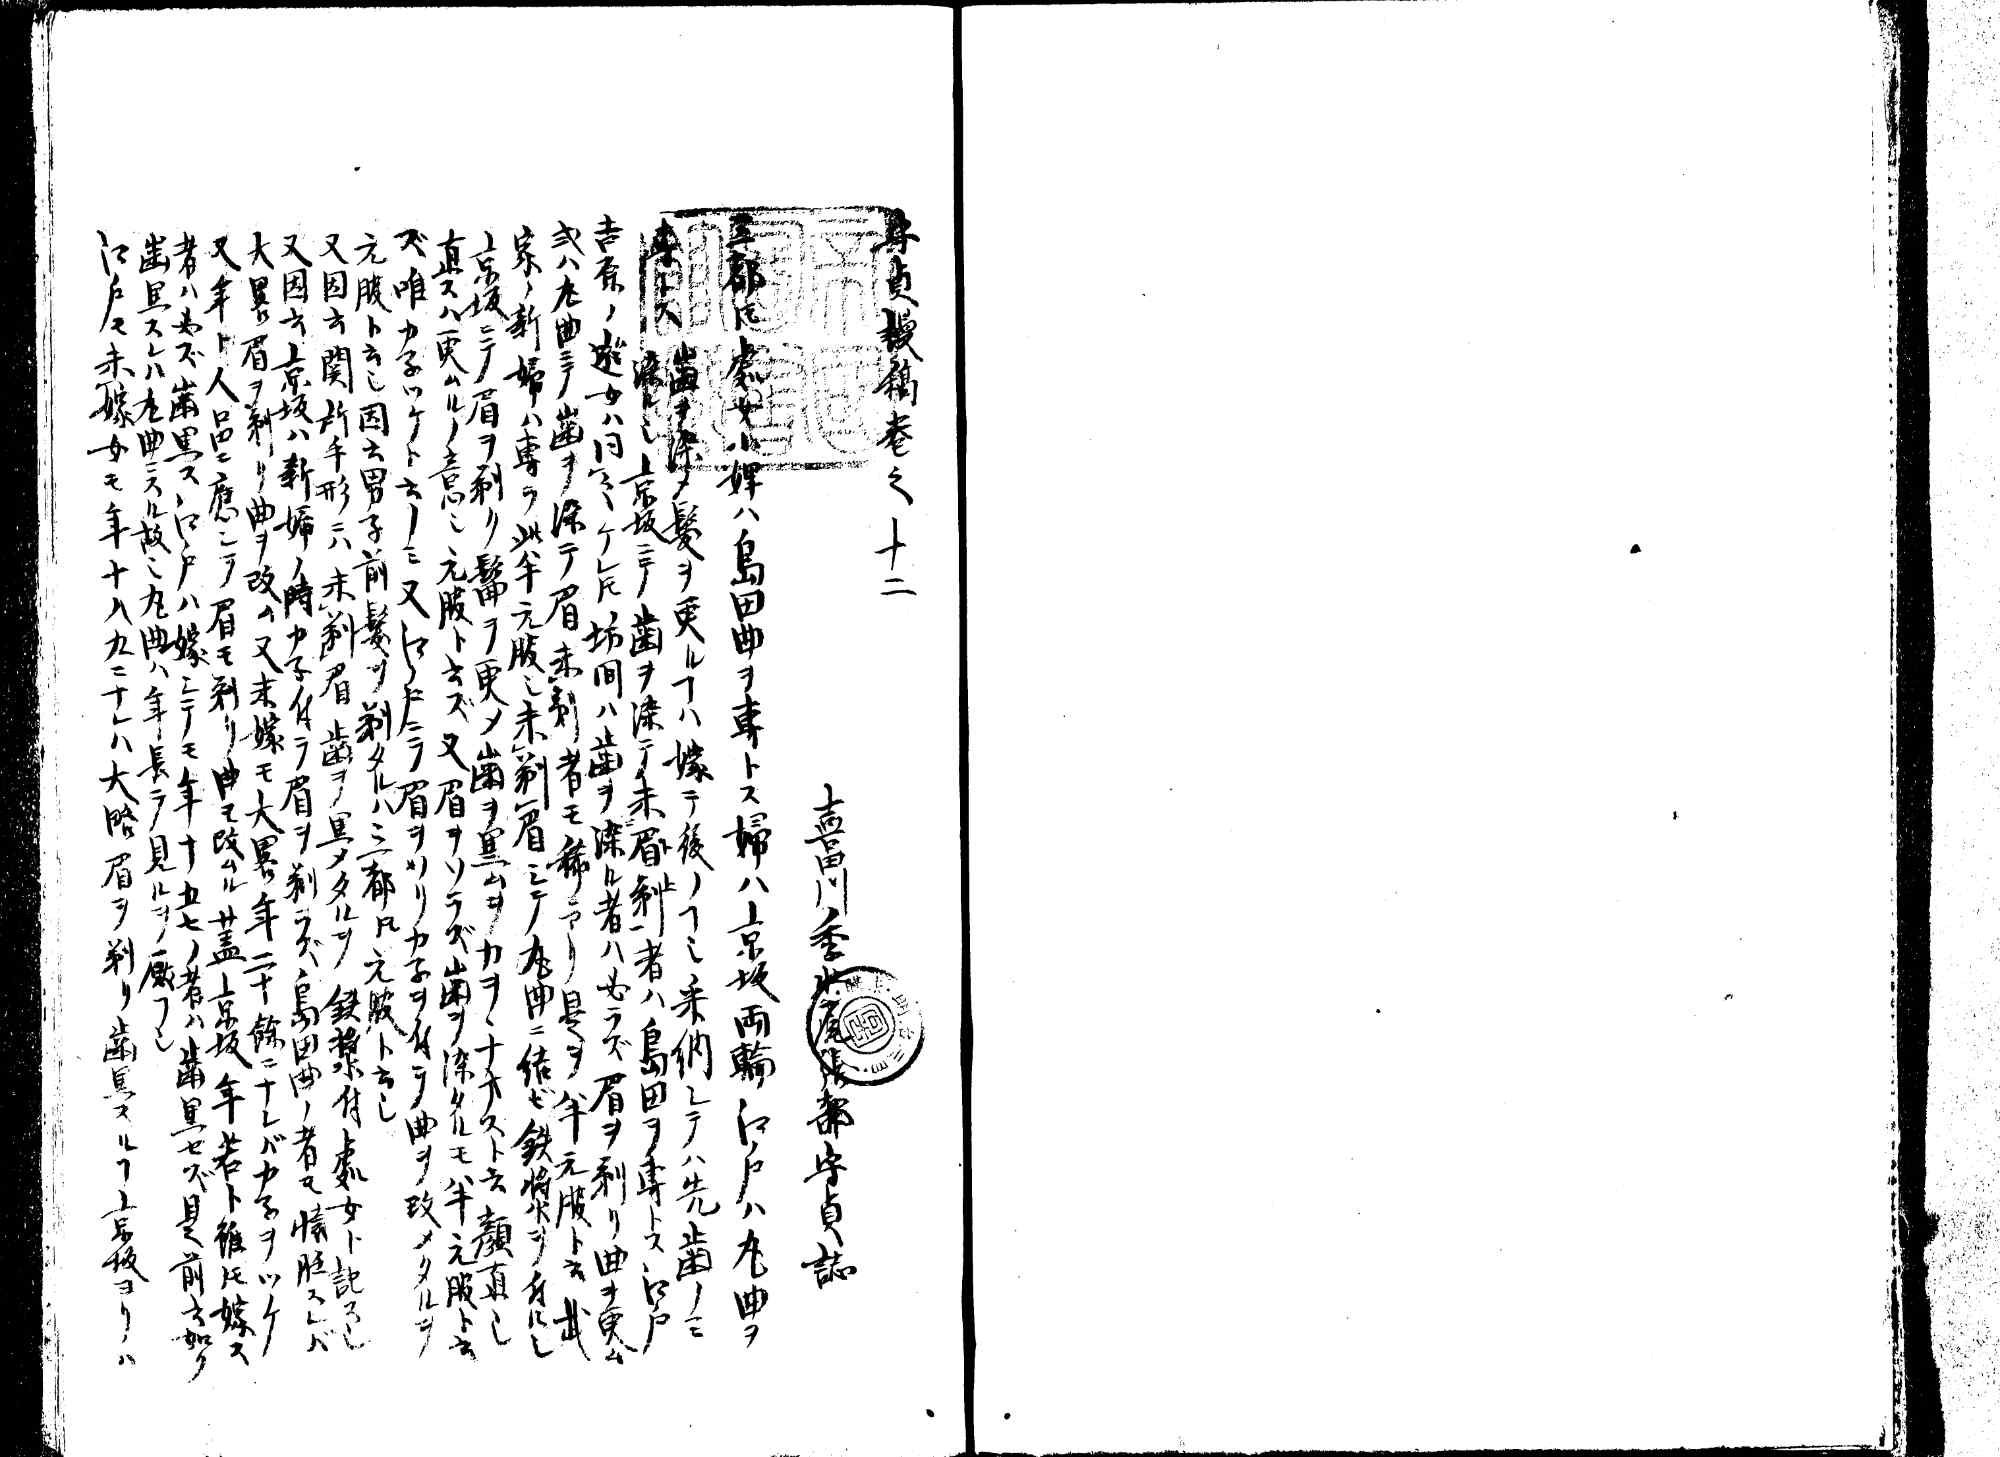 守貞謾稿巻之十二
喜田川季荘尾張部守貞誌
三都𪜈処女小婢ハ島田曲ヲ専トス婦ハ京坂両輪江戸ハ丸曲ヲ
専トス 歯ヲ染メ髪ヲ更ルヿハ嫁テ後ノヿ也采納シテハ先歯ノミ
染ル也京坂ニテ歯ヲ染テ未眉ヲ剃者ハ島田ヲ専トス江戸
吉原ノ遊女ハ同之ケレ𪜈坊間ハ歯ヲ染ル者ハ必ラズ眉ヲ剃リ曲ヲ更ム
或ハ丸曲ニテ歯ヲ染テ眉未剃者モ稀ニアリ是ヲ半元服ト云武
家ノ新婦ハ専ラ此半元服也未剃眉シテ丸曲ニ結ビ鉄漿ヲ付ル也
京坂ニテ眉ヲ剃リ髷ヲ更メ歯ヲ黒ムヲカヲナオスト云顔直也
直スハ更ムルノ意也元服ト云ズ又眉ヲソラズ歯ヲ染タルモ半元服ト云
ズ唯カネツケト云ノミ又江戸ニテ眉ヲソリカネヲ付テ曲ヲ改メタルヲ
元服ト云也因云男子前髪ヲ剃タルハ三都𪜈元服ト云也
又因云関所手形ニハ未剃眉歯ヲ黒メタルヲ鉄漿付処女ト記ス也
又因云京坂ハ新婦ノ時カネ付テ眉ヲ剃ラズ島田曲ノ者モ懐胎スレバ
大畧眉ヲ剃リ曲ヲ改ム又未嫁モ大畧年二十餘ニナレバカネヲツケ
又年ト人品ニ應シテ眉モ剃リ曲モ改ムル也蓋京坂年若ト雖𪜈嫁ス
者ハ必ズ歯黒ス江戸ハ嫁シテモ年十五七ノ者ハ歯黒セズ是前云如ク
歯黒スレハ丸曲ニスル故也丸曲ハ年長テ見ルヲ厭フ也
江戸モ未嫁女モ年十八九ニナレハ大略眉ヲ剃リ歯黒スルヿ京坂ヨリハ